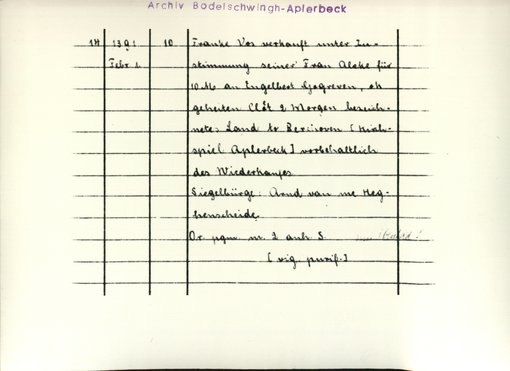 Archiv Bodelschwingh-Aplerbeck
14 1391 10 Franke Vos verkauft unter Zu-
Febr. 1. stimmung seiner Frau Aleke für
10 M an Engelbert Gogreven, oh
geheiten Clåt 2 Morgen bezeich-
netes Land to Bercinoven [Kirch-
spiel Aplerbeck] vorbehaltlich
des Wiederkaufes
Siegelbürge: Arnd van me Heg-
henscheide.
Or. pgm. m. 2 anh. S.
[vig. purif.]